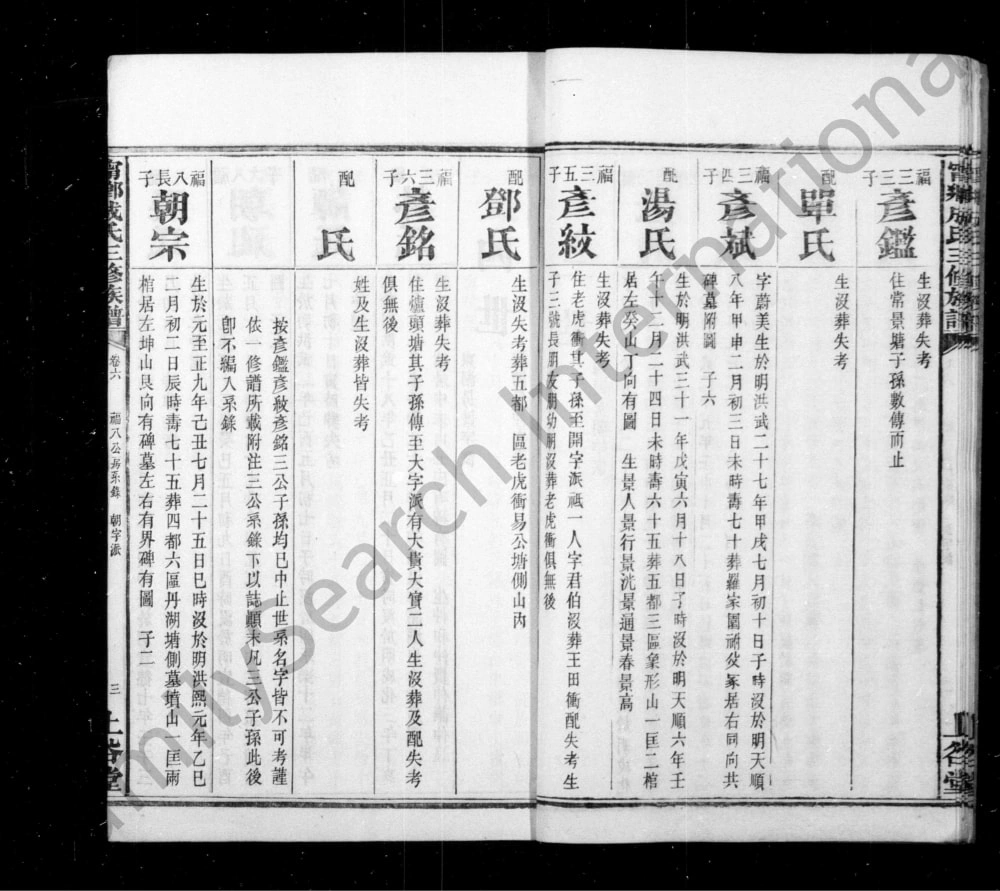 福三三子
彥鑑
生沒葬失考
住常景塘子孫數傳而止
配
單氏
生沒葬失考
福三四子
彥斌
字蔚美生於明洪武二十七年甲戌七月初十日子時沒於明天順
八年甲申二月初三日未時壽七十葬羅家園祔父冢居右同向共
碑墓附圖 子六
配
湯氏
生於明洪武三十一年戊寅六月十八日子時沒於明天順六年壬
午十二月二十四日未時壽六十五葬五都三區業形山一匡二棺
居左癸山丁向有圖 生景人景行景沇景通景春景高
福三五子
彥紋
生沒葬失考
住老虎衝其子孫至開字派祇一人字君伯沒葬王田衝配失考生
子三號長朋友朋幼朋沒葬老虎衝俱無後
配
鄧氏
生沒失考葬五都 區老虎衝易公塘側山內
福三六子
彥銘
生沒葬失考
住爐頭塘其子孫傳至大字派有大貴大實二人生沒葬及配失考
俱無後
配
氏
姓及生沒葬皆失考
按彥鑑彥紋彥銘三公子孫均已中止世系名字皆不可考謹
依一修譜所載附注三公系錄下以誌顚末凡三公子孫此後
卽不編入系錄
福八長子
朝宗
生於元至正九年己丑七月二十五日巳時沒於明洪熙元年乙巳
二月初二日辰時壽七十五葬四都六區丹湖塘側墓墳山一匡兩
棺居左坤山艮向有碑墓左右有界碑有圖 子二
甯鄉成氏三修族譜 卷六 福八公房系錄 朝字派 三 上谷堂